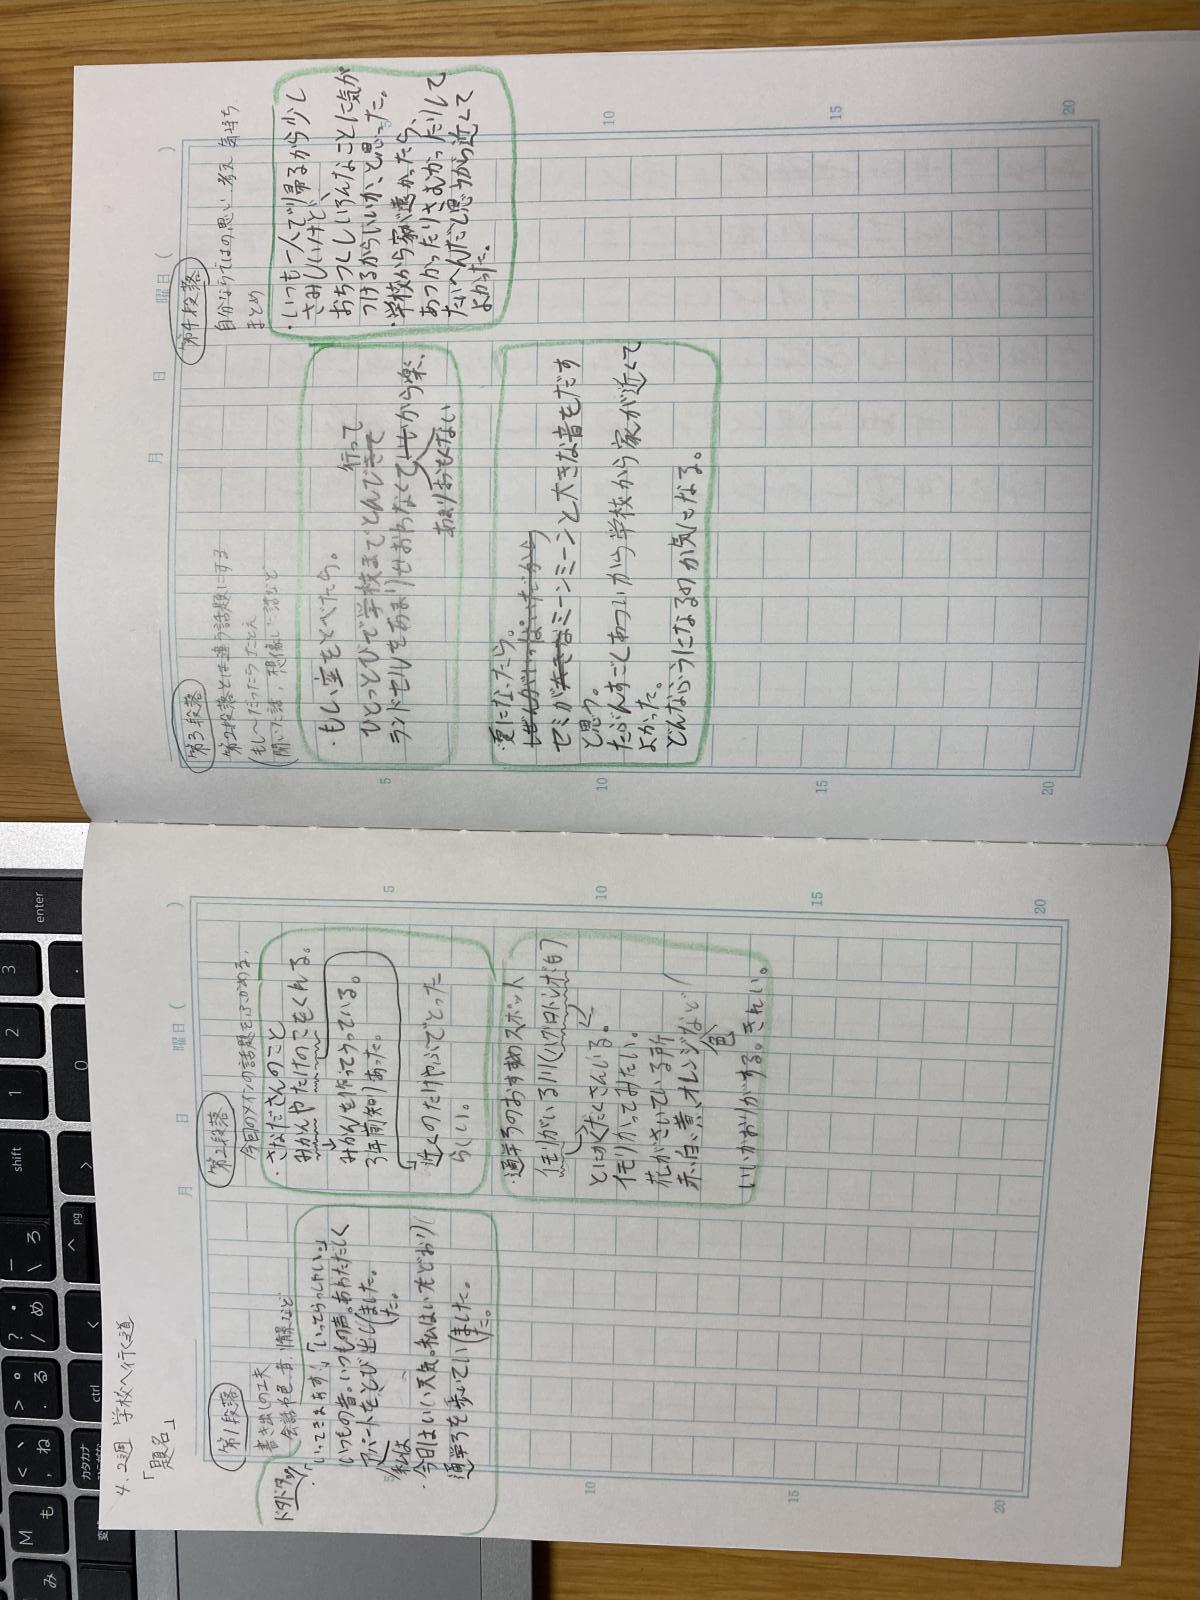 4.2週 学校へ行く道
「題名」
第1段落
書き出しの工夫
会話や色、音、情景など
ドタドタッ
・「いってきまあす！」「いってらっしゃい。」
いつもの音。いつもの声。あわただしく
アパートをとび出しました。
た。
私は
・今日はいい天気。私はいつもどおり
通学ろを歩いていました。
た。
月 日 曜日( )
第2段落
今回のメインの話題をふかめる。
・さなださんのこと
みかんやたけのこをくれる。
みかんを作ってうっている。
3年前知りあった。
近くのたけやぶでとった
らしい。
・通学ろのおすすめスポット
イモリがいる川(ハグロトンボも)
とにかくたくさんいる。
イモリかってみたい。
花がさいている所
赤、白、黄、オレンジなど
色
いいかおりがする。きれい。
5
10
15
20
第3段落
第2段落とは違う話題にする
もし〜だったら、たとえ
聞いた話、想像した話など
・もし、空をとべたら。
ひとっとびで学校までとんできて
行って
ランドセルをあまりせおわなくてせから楽、
あまりおもくない
・夏になったら。
しぜんがいっぱいだから
セミが大きなミーンミーンと大きな音をだす
と思う。
たぶんすごくあついから学校から家が近くて
よかった。
どんなふうになるのか気になる。
月 日 曜日( )
第4段落
自分ならではの思い、考え、気持ち
まとめ
・いつも一人で帰るから少し
さみしいけど、
おちつくしいろんなことに気が
つけるからいいか、と思った。
・学校から家が遠かったら、
あつかったりさむかったりして
たいへんだと思うから近くて
よかった。
5
10
15
20
enter
shift
ctrl
pg
カタカナ